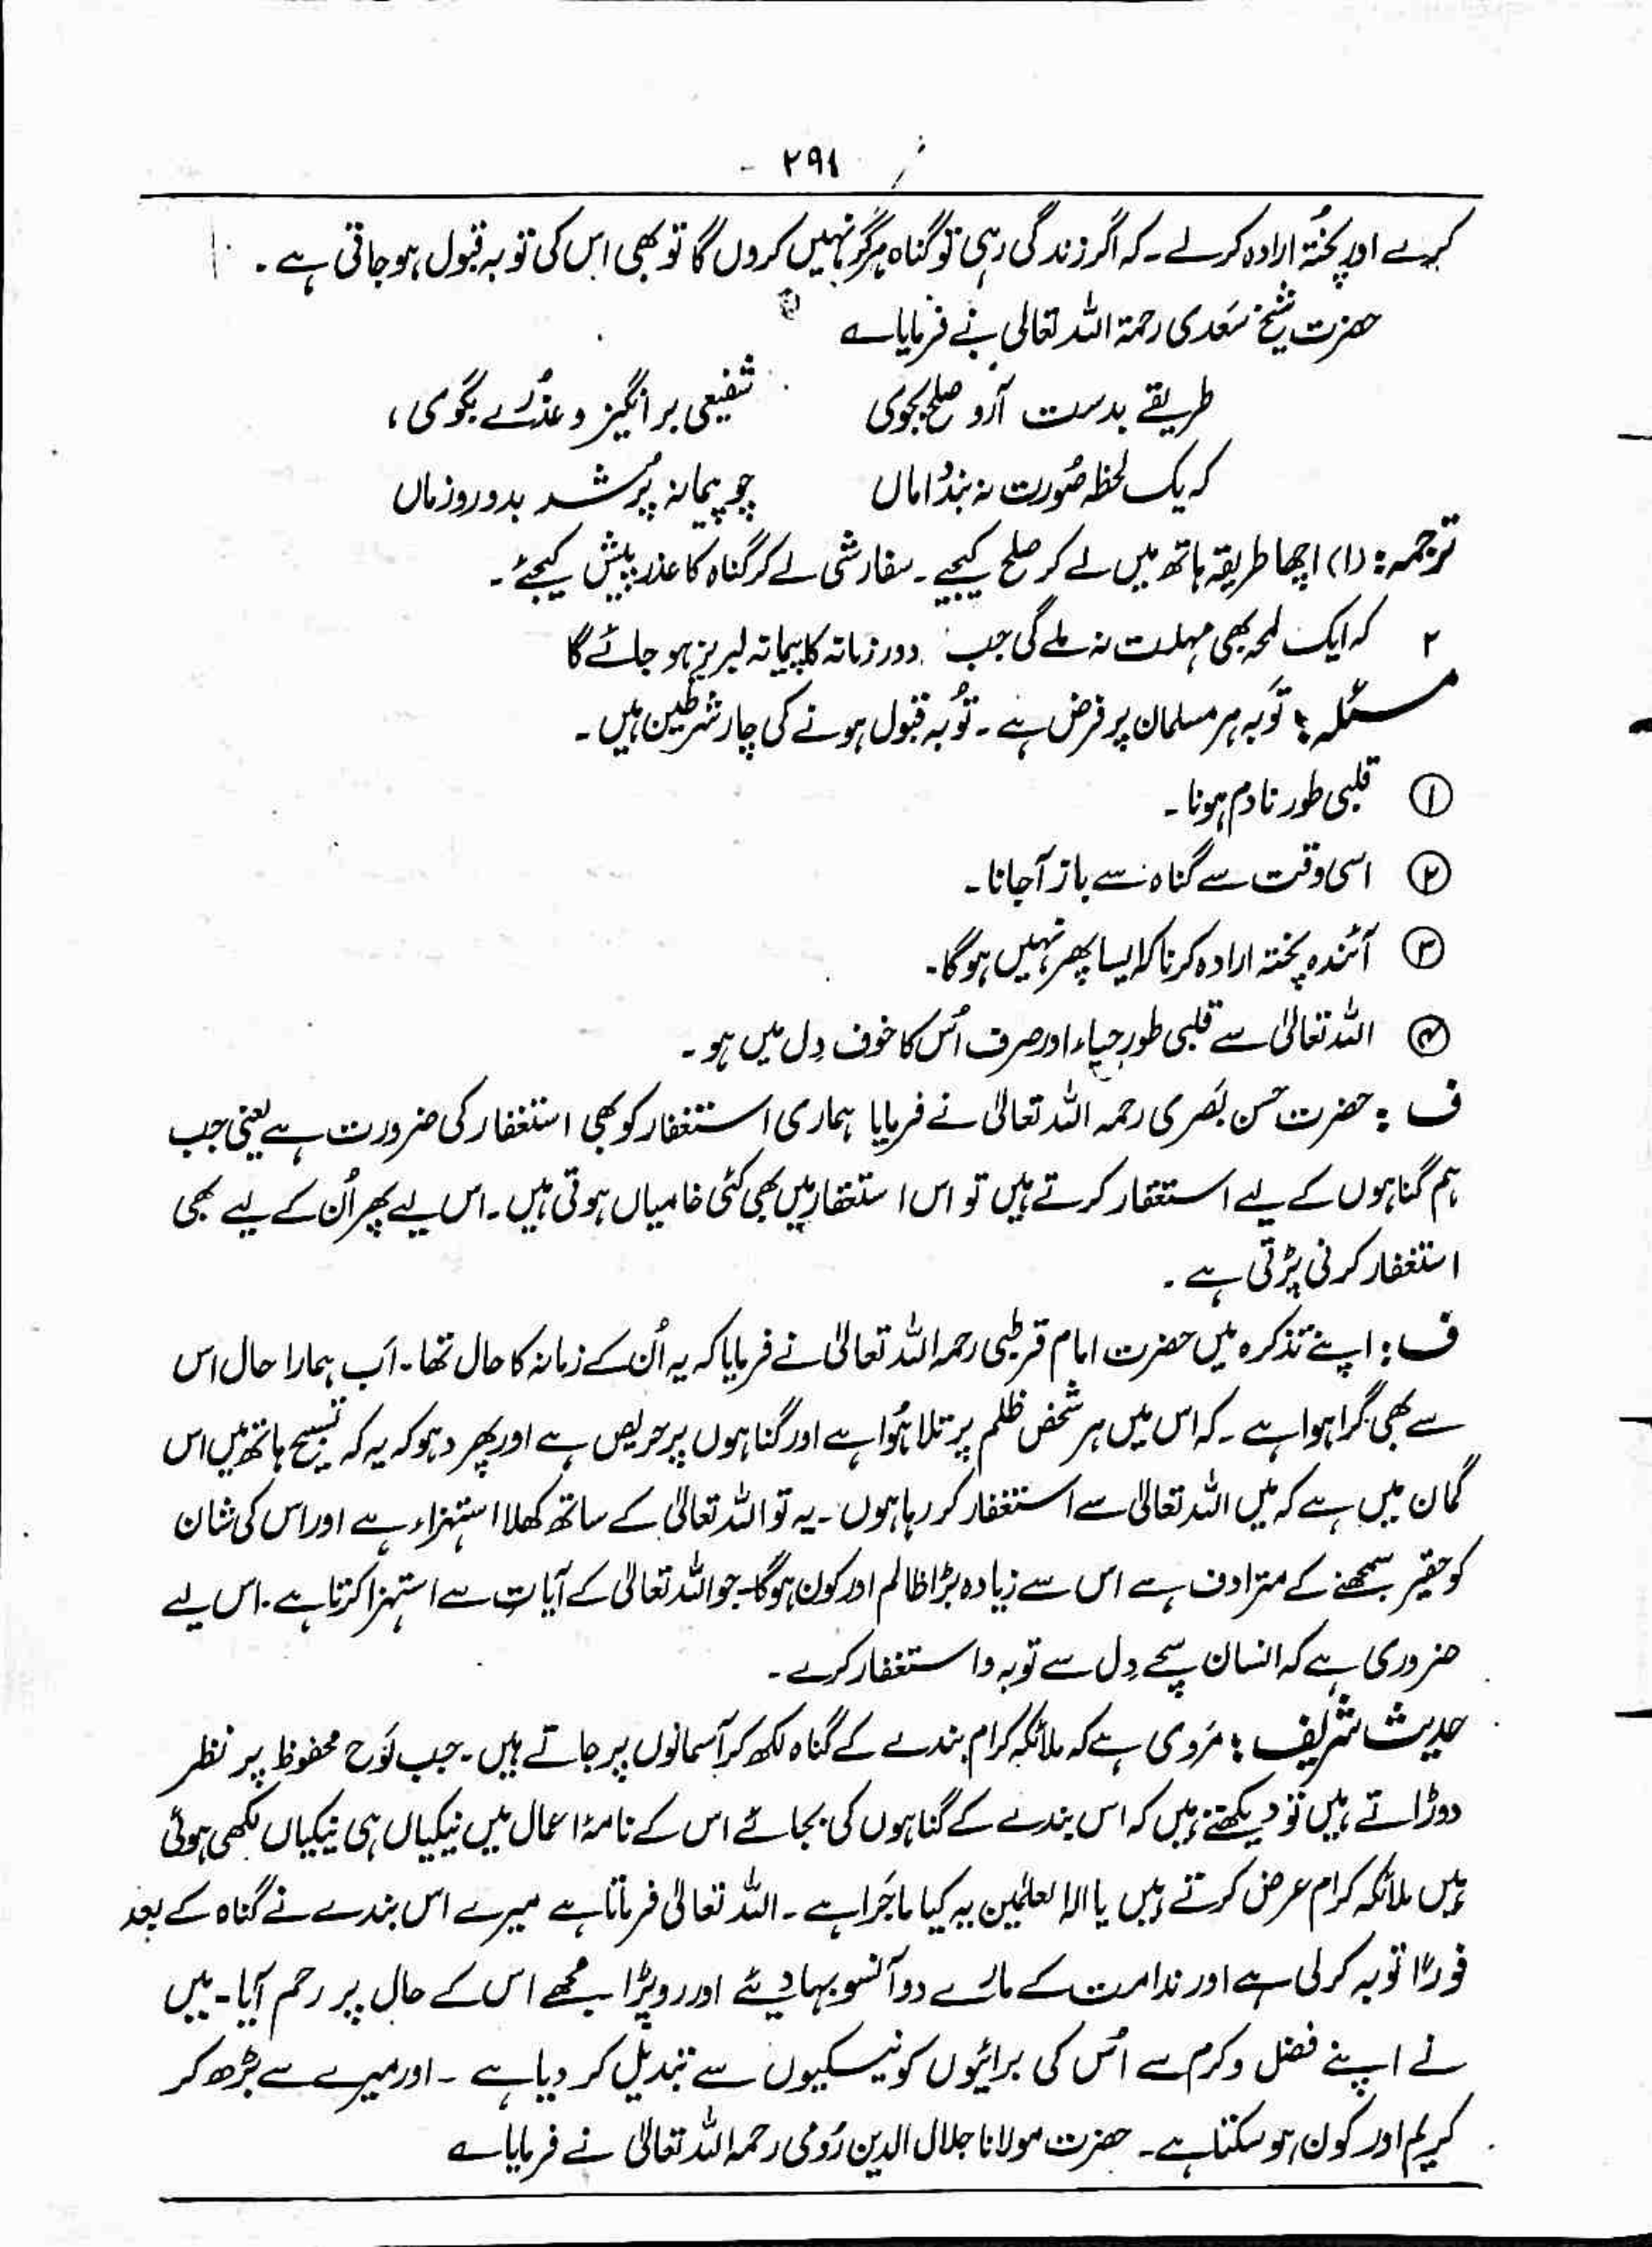 ۲۹۱
کرے اور پختہ ارادہ کرلے ۔ کہ اگر زندگی رہی تو گناہ ہرگز نہیں کروں گا تو بھی اس کی توبہ قبول ہو جاتی ہے ۔
حضرت شیخ سَعدی رحمۃ اللہ تعالی نے فرمایا ؎
طریقے بدست آرو صلح بجوی شفیعی بر انگیز و عذُرے بگوی ،
کہ یک لحظہ صُورت نہ بندُ اماں چو پیمانہ پُر شد بدور وزماں
ترجمہ : (۱) اچھا طریقہ ہاتھ میں لے کر صلح کیجیے ۔ سفارشی لے کر گناہ کا عذر پیش کیجئے ۔
۲ کہ ایک لمحہ بھی مہلت نہ ملے گی جب دور زمانہ کا پیمانہ لبریز ہو جائے گا
مسئلہ : توبہ ہر مسلمان پر فرض ہے ۔ توُبہ قبول ہونے کی چار شرطیں ہیں ۔
① قلبی طور نادم ہونا ۔
② اسی وقت سے گناہ سے باز آجانا ۔
③ آئندہ پختہ ارادہ کرنا کہ ایسا پھر نہیں ہوگا ۔
④ اللہ تعالیٰ سے قلبی طور حیاء اور صرف اُس کا خوف دِل میں ہو ۔
ف : حضرت حسن بَصری رحمہ اللہ تعالیٰ نے فرمایا ہماری استغفار کو بھی استغفار کی ضرورت ہے یعنی جب
ہم گناہوں کے لیے استغفار کرتے ہیں تو اس استغفار میں بھی کئی خامیاں ہوتی ہیں ۔ اس لیے پھر اُن کے لیے بھی
استغفار کرنی پڑتی ہے ۔
ف : اپنے تذکرہ میں حضرت امام قرطبی رحمہ اللہ تعالیٰ نے فرمایا کہ یہ اُن کے زمانہ کا حال تھا ۔ اَب ہمارا حال اس
سے بھی گرا ہوا ہے ۔ کہ اس میں ہر شخص ظلم پر تلا ہُوا ہے اور گناہوں پر حریص ہے اور پھر دہوکہ یہ کہ تسبیح ہاتھ میں اس
گمان میں ہے کہ میں اللہ تعالیٰ سے استغفار کر رہا ہوں ۔ یہ تو اللہ تعالیٰ کے ساتھ کھلا استہزاء ہے اور اس کی شان
کو حقیر سمجھنے کے مترادف ہے اس سے زیادہ بڑا ظالم اور کون ہوگا ۔ جو اللہ تعالیٰ کے آیات سے استہزا کرتا ہے ۔ اس لیے
ضروری ہے کہ انسان سچے دِل سے توبہ و استغفار کرے ۔
حدیث شریف : مَروی ہے کہ ملائکہ کرام بندے کے گناہ لکھ کر آسمانوں پر جاتے ہیں ۔ جب لَوح محفوظ پر نظر
دوڑاتے ہیں تو دیکھتے ہیں کہ اس بندے کے گناہوں کی بجائے اس کے نامۂ اعمال میں نیکیاں ہی نیکیاں لکھی ہوئی
ہیں ملائکہ کرام عرض کرتے ہیں یا الہ العلمین یہ کیا ماجَرا ہے ۔ اللہ تعالیٰ فرماتا ہے میرے اس بندے نے گناہ کے بعد
فورًا توبہ کر لی ہے اور ندامت کے مارے دو آنسو بہا دیئے اور رو پڑا مجھے اس کے حال پر رحم آیا ۔ میں
نے اپنے فضل و کرم سے اُس کی برائیوں کو نیکیوں سے تبدیل کر دیا ہے ۔ اور میرے سے بڑھ کر
کریم اور کون ہو سکتا ہے ۔ حضرت مولانا جلال الدین رُومی رحمہ اللہ تعالیٰ نے فرمایا ؎